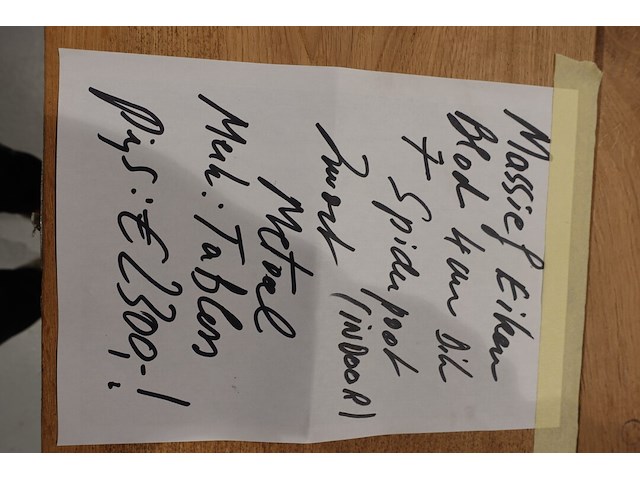 Massief Eiken
Blad 4cm Dik
+ Spiderpoot
Zwart (INDOOR)
Metaal
Merk: Tabless
Prijs: € 2300,-!